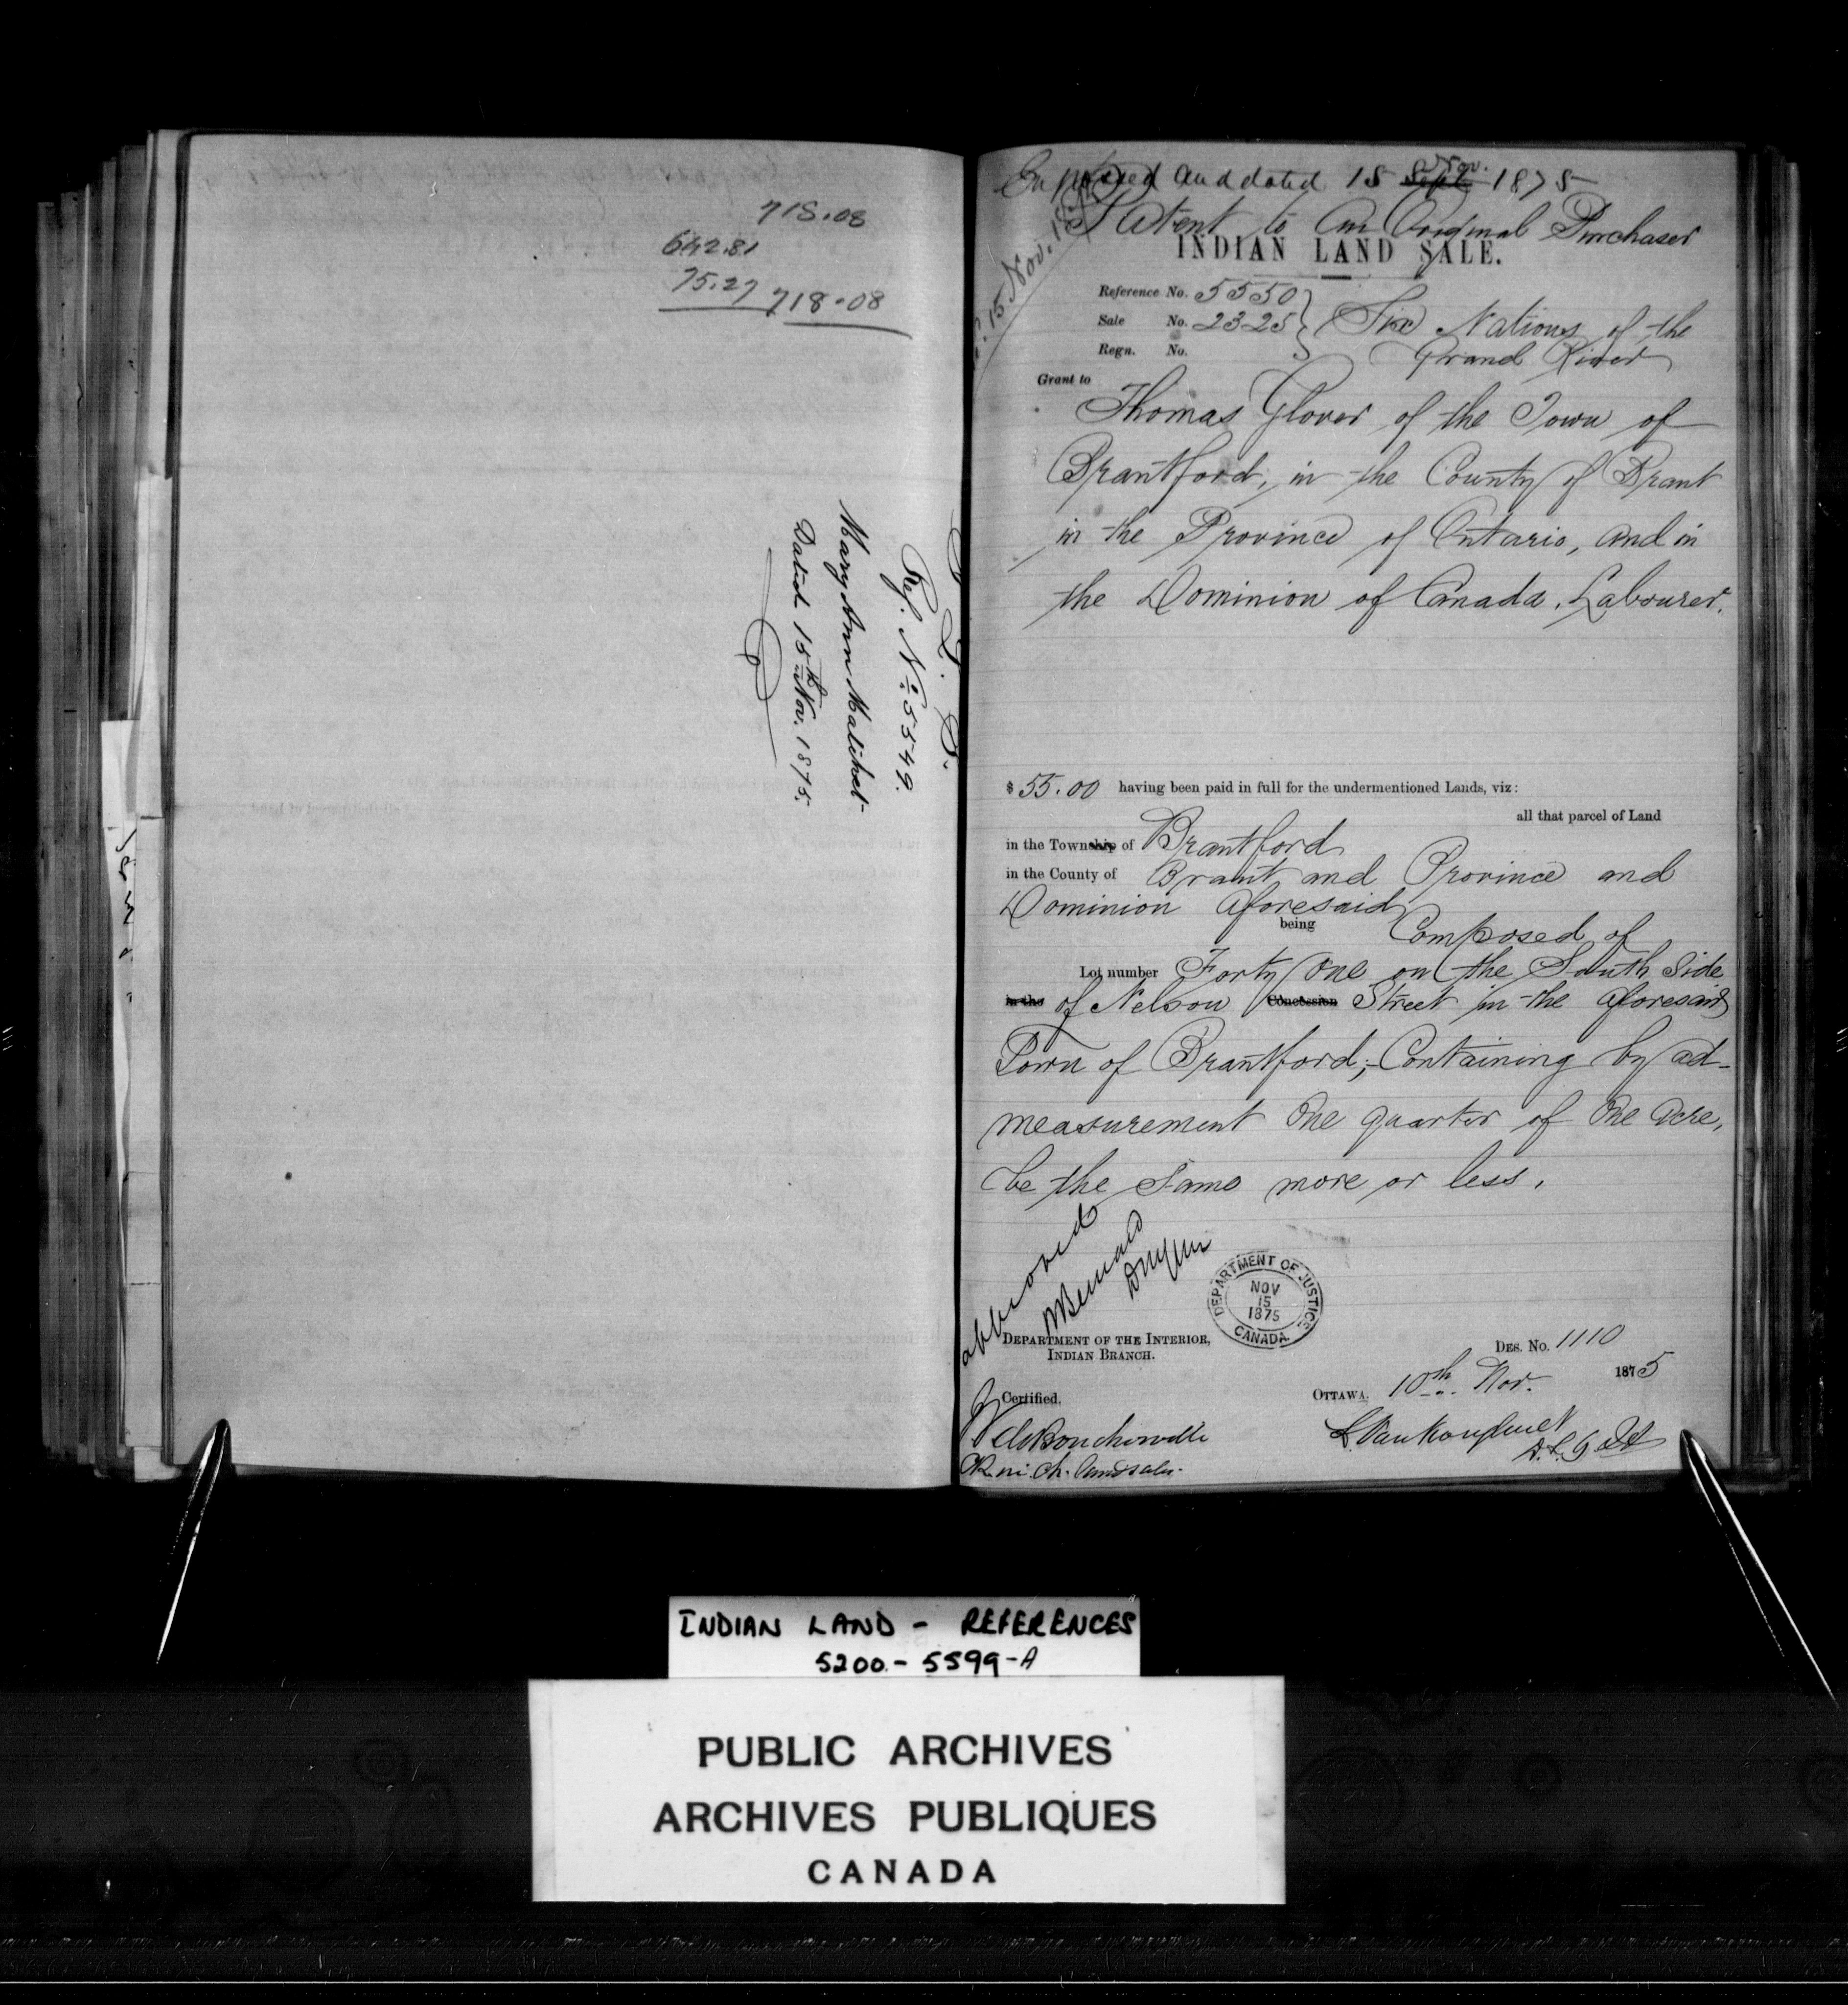 718.08
642.81
75.27 718.08
I. L. S.
Ref. No. 5549.
Mary Ann
Dated 15th Nov. 1875.
Engrossed and dated 15 Sept. Nov. 1875
Patent to an Original Purchaser
15 Nov. 18
INDIAN LAND SALE.
Reference No. 5550
Sale No. 2325 } Six Nations of the
Regn. No. Grand River
Grant to
Thomas Glover of the Town of
Brantford, in the County of Brant
in the Province of Ontario, and in
the Dominion of Canada, Labourer.
$ 55.00 having been paid in full for the undermentioned Lands, viz:
all that parcel of Land
in the Township of Brantford
in the County of Brant and Province and
Dominion aforesaid
being Composed of
Lot number Forty One on the South Side
in the of Nelson Concession Street in the aforesaid
Town of Brantford;- Containing by ad-
measurement One quarter of One Acre,
be the same more or less.
approved
H Bernard
DEPARTMENT OF JUSTICE
NOV
15
1875
CANADA
DEPARTMENT OF THE INTERIOR,
INDIAN BRANCH.
DES. No. 1110
OTTAWA, 10th Nov. 1875
Certified,
L. Vankoughnet
D.S.G.
de Boucherville
INDIAN LAND - REFERENCES
5200 - 5599-A
PUBLIC ARCHIVES
ARCHIVES PUBLIQUES
CANADA